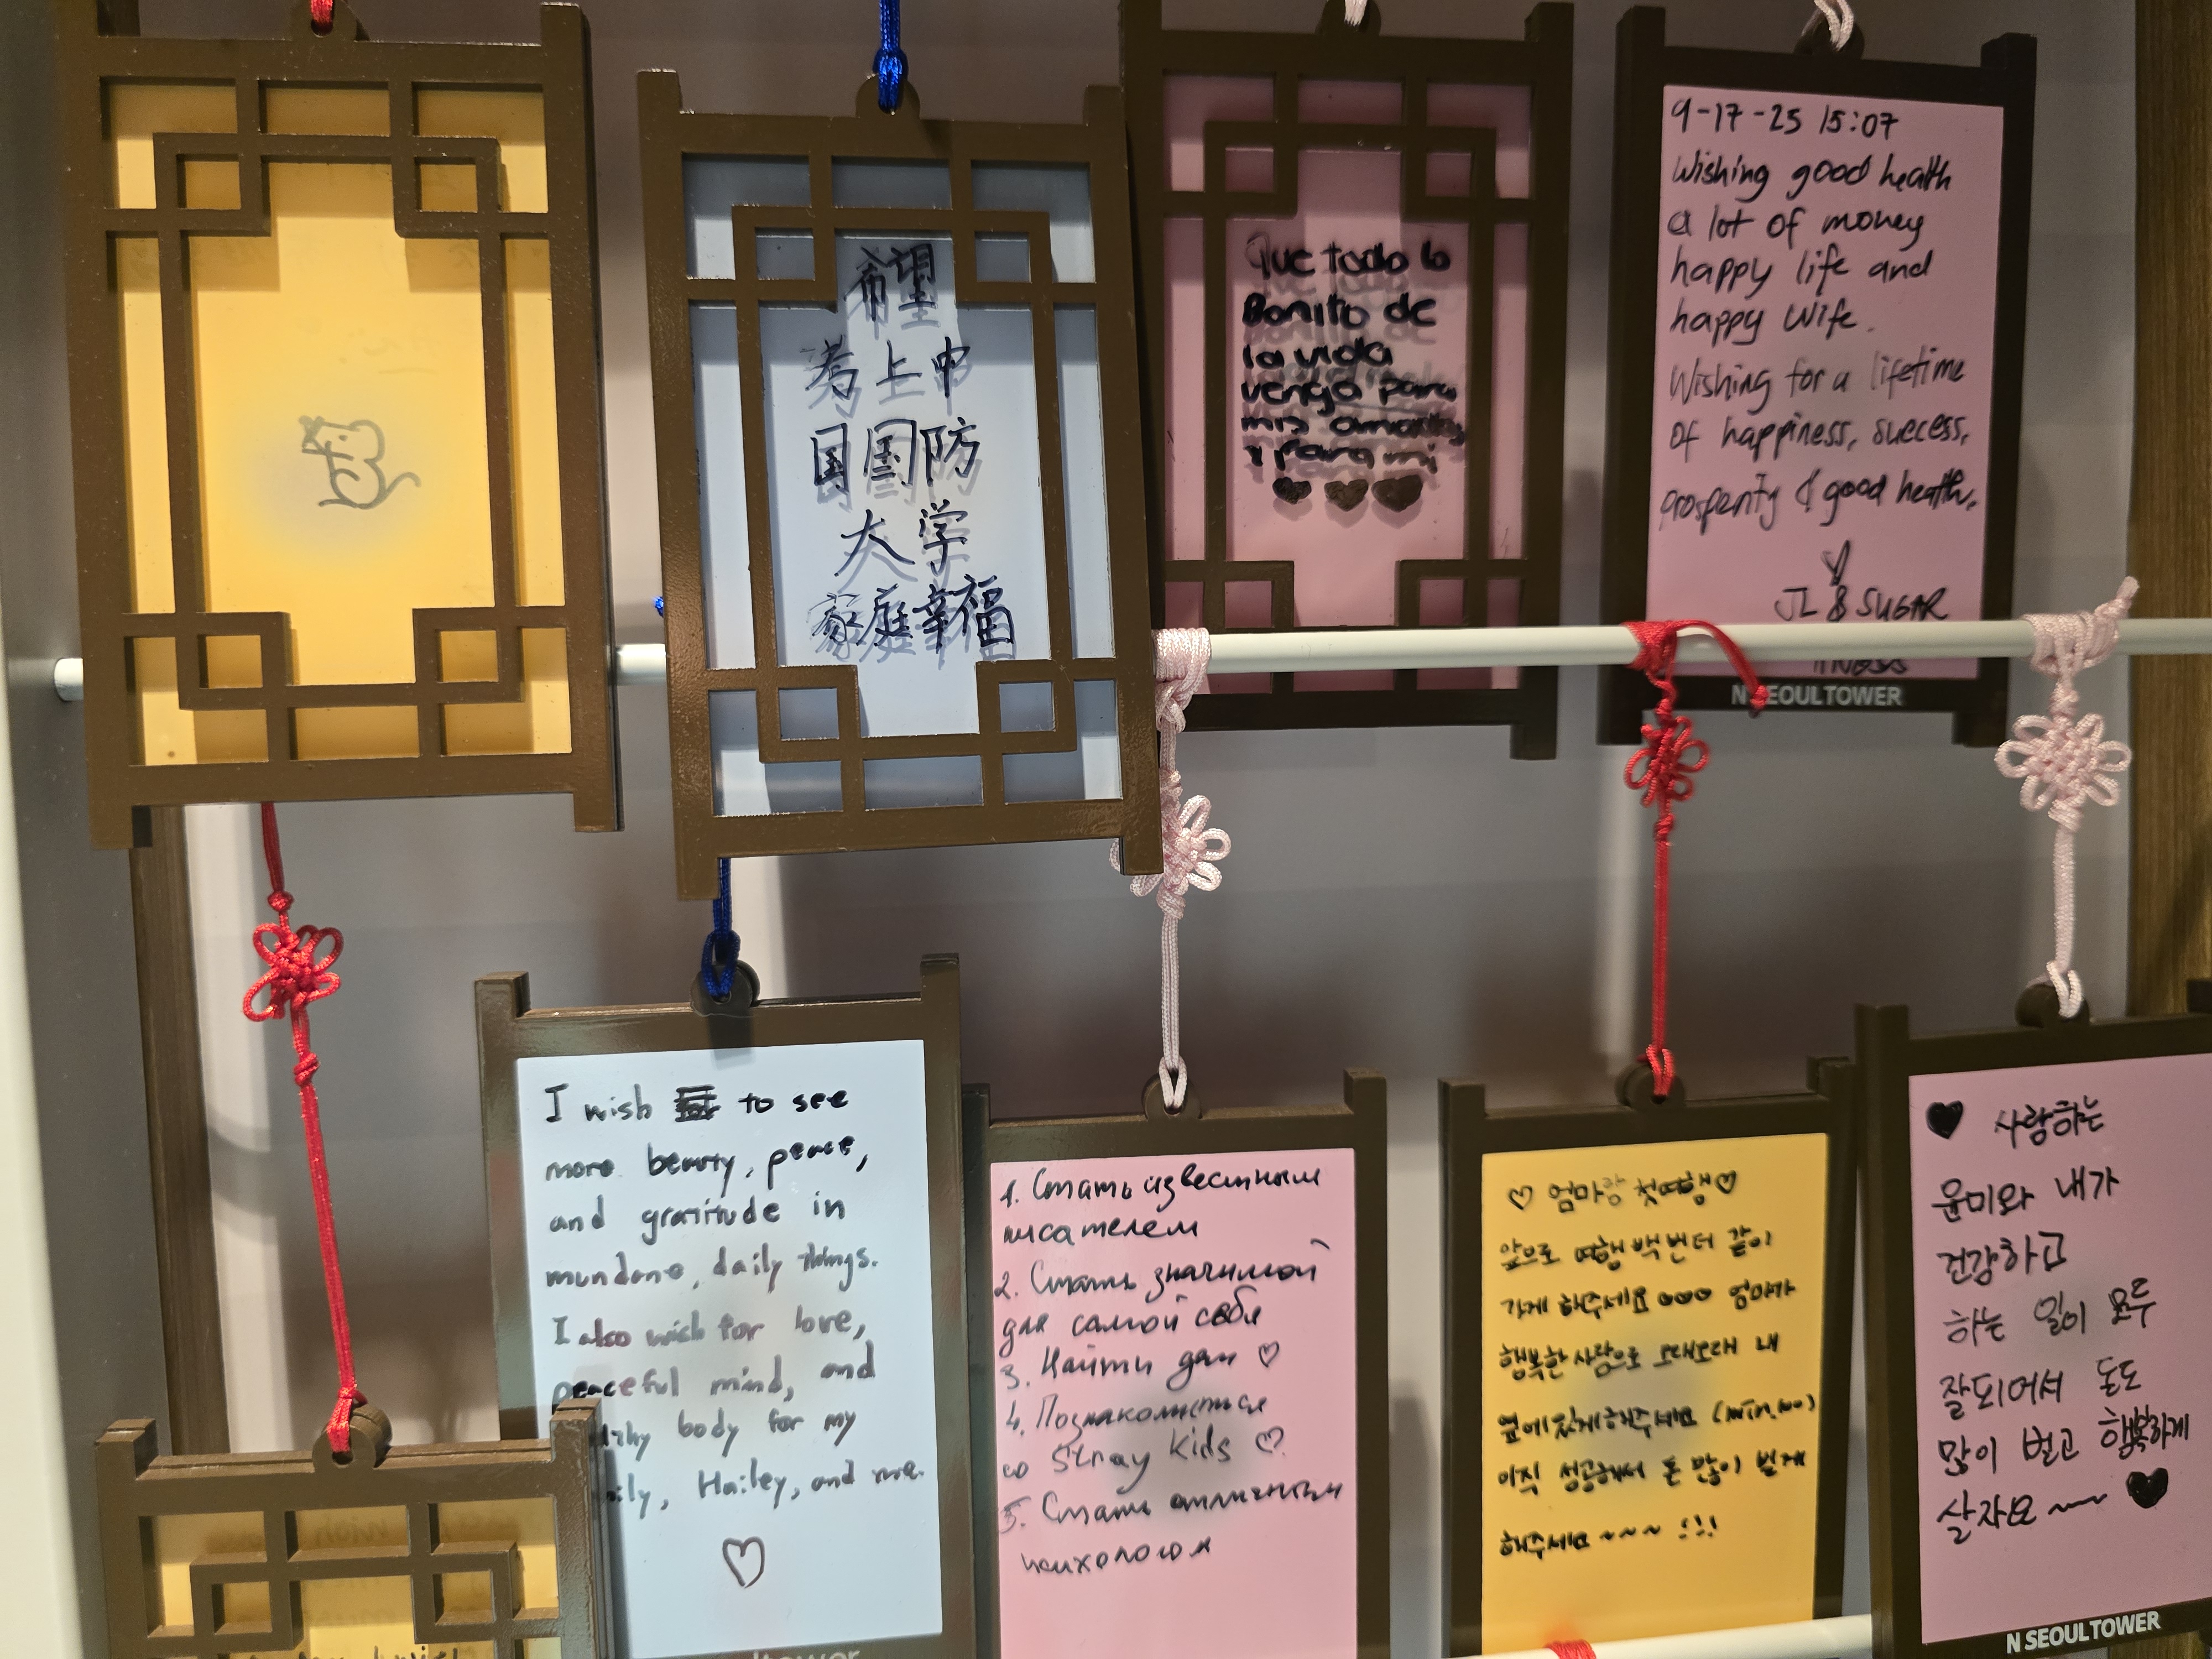 希望
考上中
国国防
大学
家庭幸福
Que todo lo
Bonito de
la vida
venga para
mis
y para mi
9-17-25 15:07
Wishing good health
a lot of money
happy life and
happy wife.
Wishing for a lifetime
of happiness, success,
prosperity & good health.
JL & SUGAR
N SEOULTOWER
I wish to see
more beauty, peace,
and gratitude in
mundane, daily things.
I also wish for love,
peaceful mind, and
body for my
Hailey, and me.
1. Стать известным
писателем
2. Стать значимой
для самой себя
3. Найти дом ♡
4. Познакомиться
со Stray Kids ♡
5. Стать отличным
психологом
♡ 엄마랑 첫여행 ♡
앞으로 여행 백번 더 같이
가게 해주세요 ooo 엄마가
행복한 사람으로 오래오래 내
옆에 있게 해주세요
이직 성공해서 돈 많이 벌게
해주세요 ~~~~ !!!
♥ 사랑하는
윤미와 내가
건강하고
하는 일이 모두
잘되어서 돈도
많이 벌고 행복하게
살자요 ~~ ♥
N SEOULTOWER